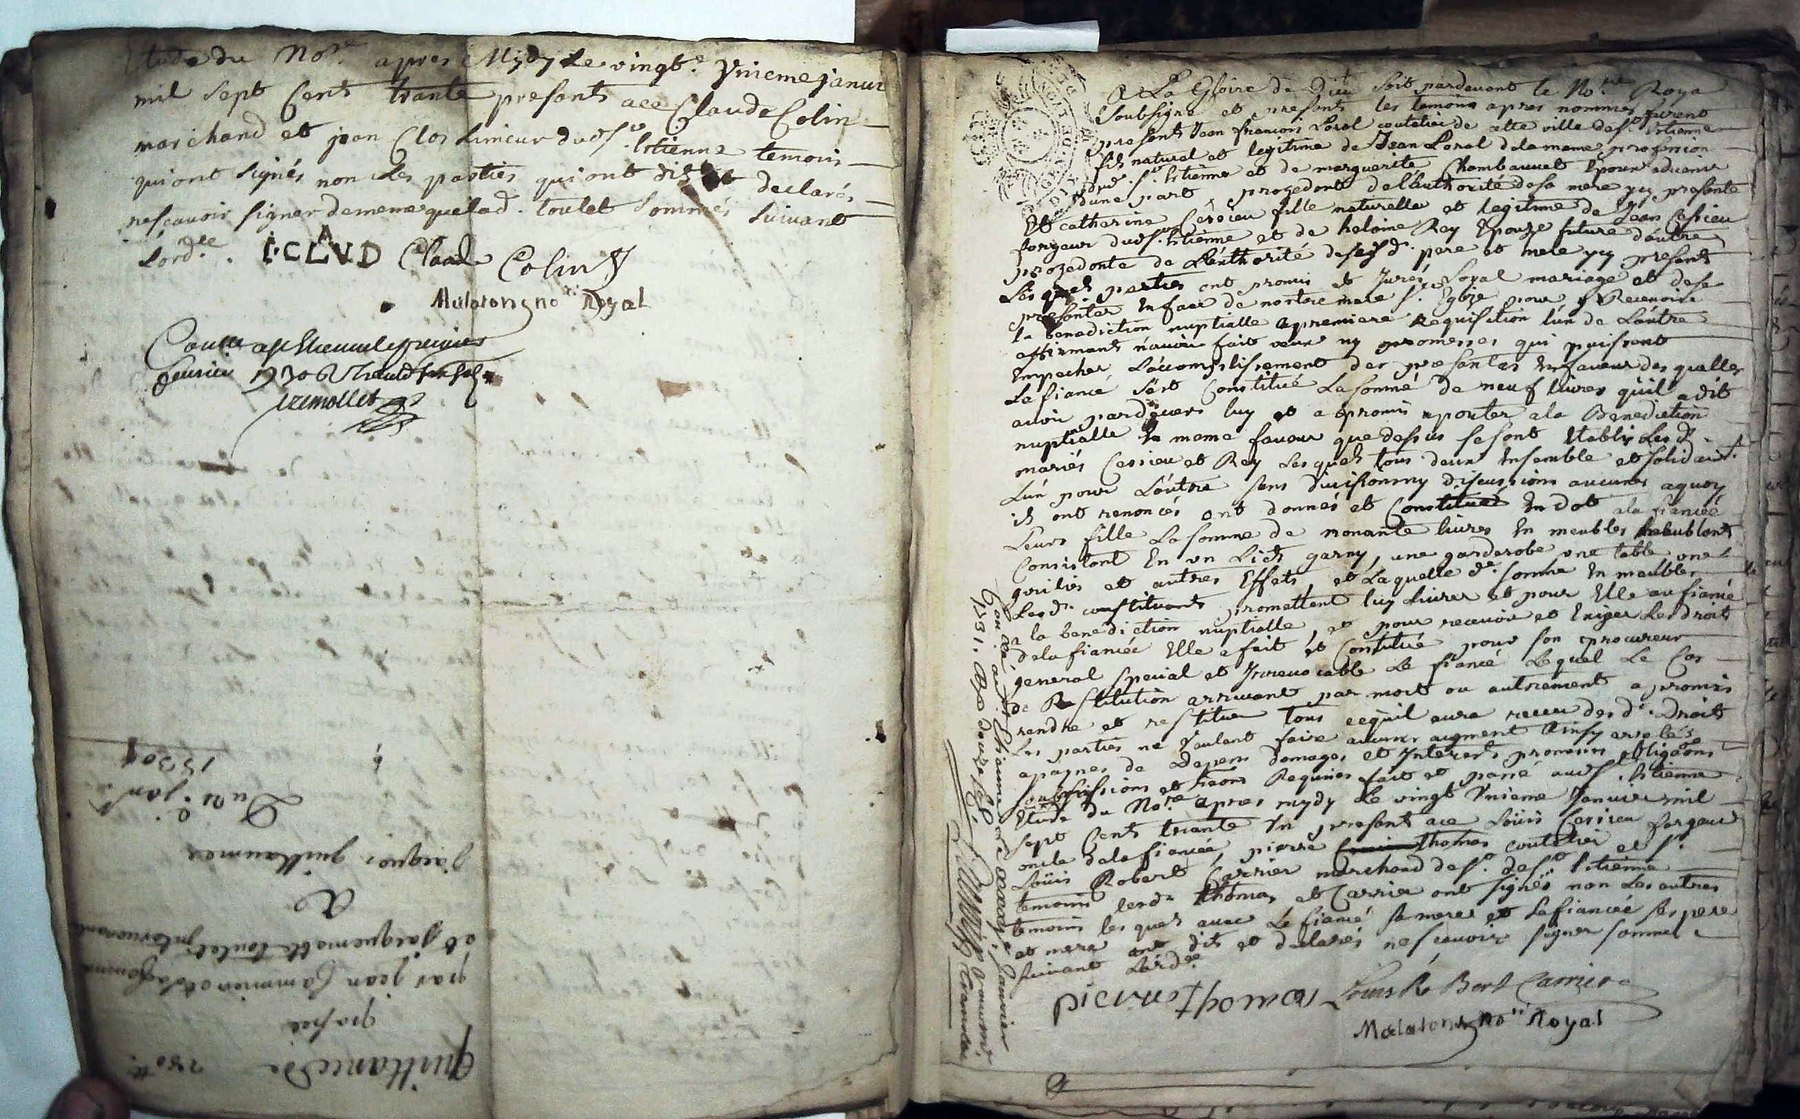 Etude du No.re apres Mydy Le vingt Unieme janvier
mil sept Cents trante presents ace Claude Colin
marchand et jean Clos Limeur dud S.t Estienne temoins
qui ont signés non Les parties qui ont dit et declarés
ne scavoir signer de meme que lad. toulet sommés suivant
Lord.ce
I·CLAVD Claude Colin
Malatong no.re Royal
feuvrier 1730
Quittance de 280.tt
passée
par jean
et jacquemette toulet
A
jacques guillaumes
Du 21.e jan.er
1730
A La Gloire de Dieu soit pardevant le No.re Roya
Soubsigné et presents les temoins apres nommes furent
presents Jean francois Loral coutelier de cette ville de S.t Estienne
fils naturel et legitime de Jean Loral de la meme profession
dud. S.t Estienne et de marguerite Chambauvet Epoux advenir
dune part procedant de l'authorité de sa mere ycy presente
Et catherine Cessieu fille naturelle et legitime de Jean Cessieu
forgeur dud S.t Estienne et de heleine Rey Epouze future d'autre
procedante de L'authorité desesd. pere et mere ycy presents
Lesquels parties ont promis et Jurés Loyal mariage et de se
presenter En face de nostre mere S.te Eglize pour y Recevoir
la benediction nuptialle apremiere Requisition l'un de Lautre
affirmants n'avoir fait veux ny promesses qui puissent
Empecher Laccomplissement des presentes En faveur desquelles
Le fiancé s'est Constitué La somme de neuf Livres quil a dit
avoir pardevers luy et a promis aporter a la Benediction
nuptialle En meme faveur que dessus se sont Etablis Lesd.
mariés Cessieu et Rey Lesquels tous deux Ensemble et solidair.t
L'un pour L'autre sans division ny discussions aucunes aquoy
ils ont renoncés ont donnés et Constitués En dot a la fiancée
Leurs fille La somme de nonante livres En meubles
Consistant En un Lict garny, une garderobe une table une
et autres Effets, et Laquelle d. somme En meubles
Lesd. constituants promettent luy Livrer et pour Elle au fiancé
a la benediction nuptialle, et pour recevoir et Exiger Les droits
de la fiancée Elle a fait et Constitué pour son procureur
general special et Irrevocable Le fiancé Lequel Le Cas
de Restitution arrivant par mort ou autrement a promis
rendre et restituer tous ce quil aura receu des d. Droits
Les parties ne voulant faire aucuns augment Ainsy arrestés
apeines de Depens Domages et Interests promesses obligaons
Soubmissions et Renons Requises fait et passé aud S.t Estienne
Etude du No.re apres mydy Le vingt Unieme Janvier mil
sept Cents trante En presents ace Loüis Cessieu forgeur
oncle de la fiancée, pierre thomas coutelier et S.r
Loüis Robert Carrier marchand de S.t Estienne
temoins lesd. thomas et Carrier ont signés non Les autres
temoins les quels avec Le fiancé sa mere et La fiancée ses pere
et mere ont dits et declarés ne scavoir signer sommés
suivant Lord.ce
pierre thomas Louis Ro Bert Carrier
Malatong No.re Royal
1731.